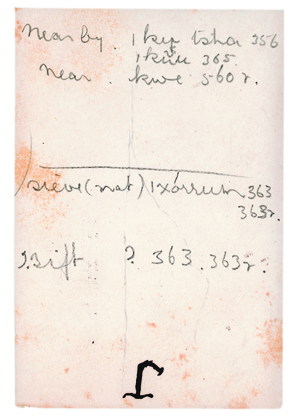 Near by. |kẹẹ tshoa 356
|kũũ 365.
Near. kwe 560r.
sieve (nat) |xórrum 363
363r.
?Sift ? 363. 363r.